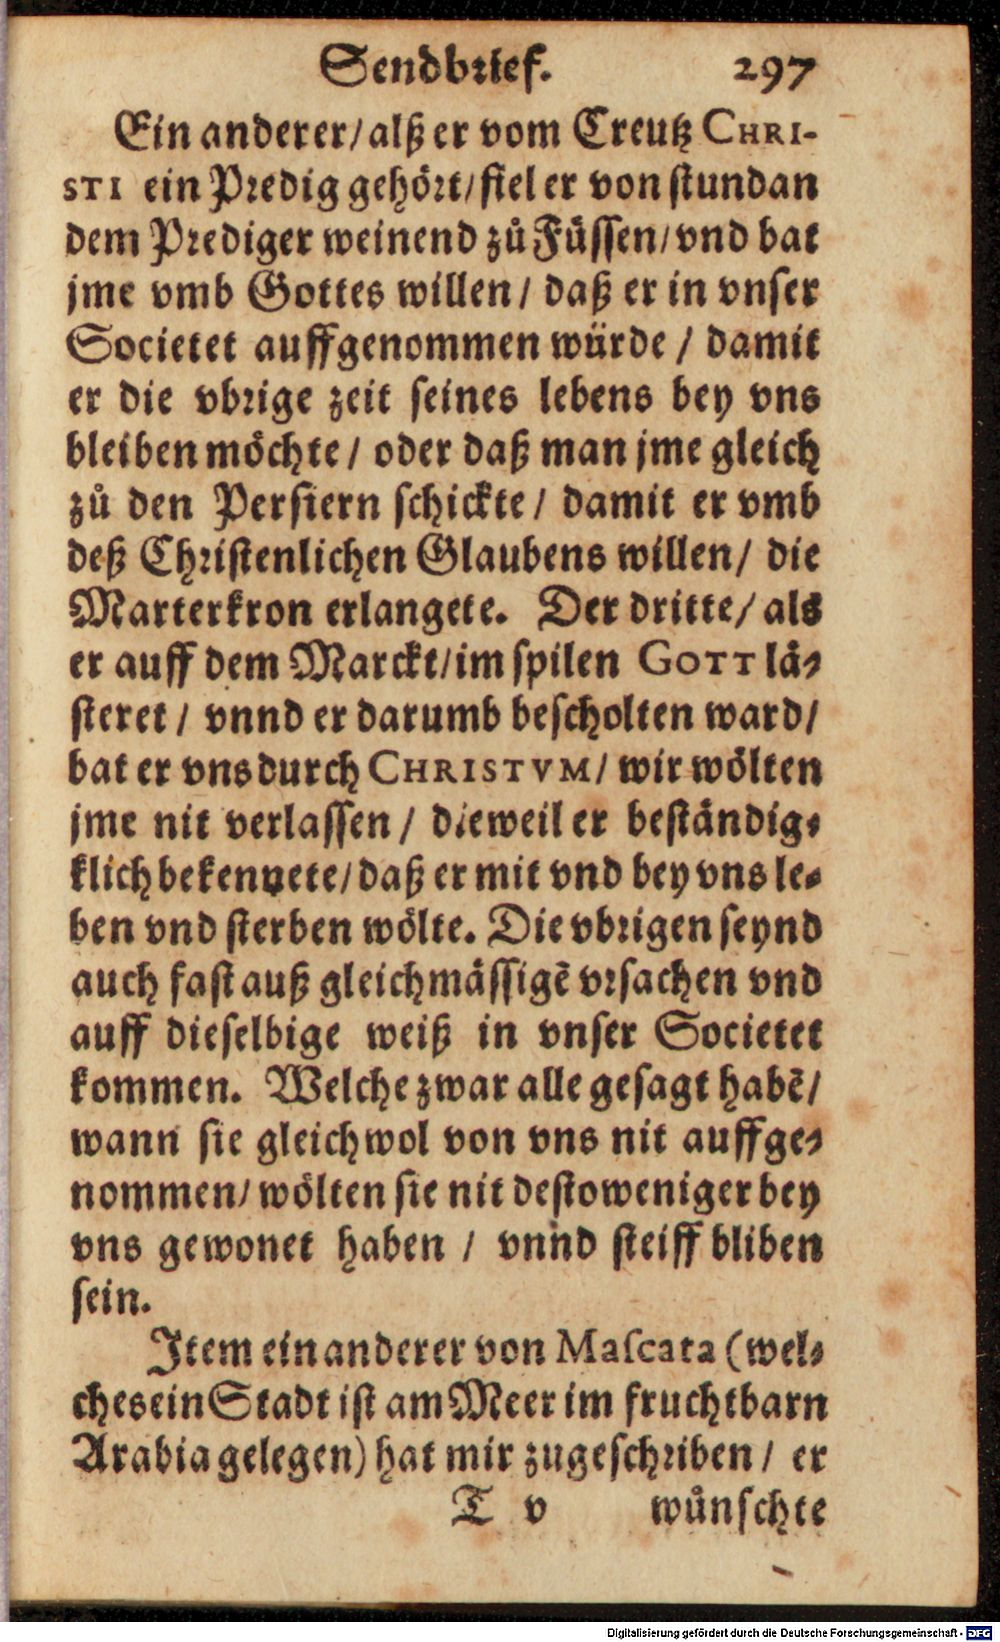 Sendbrief. 297
Ein anderer/ alß er vom Creutz CHRI-
STI ein Predig gehört/ fiel er von stundan
dem Prediger weinend zů Füssen/ vnd bat
jme vmb Gottes willen/ daß er in vnser
Societet auffgenommen würde / damit
er die vbrige zeit seines lebens bey vns
bleiben möchte/ oder daß man jme gleich
zů den Persiern schickte/ damit er vmb
deß Christenlichen Glaubens willen/ die
Marterkron erlangete. Der dritte/ als
er auff dem Marckt/ im spilen GOTT lä-
steret/ vnnd er darumb bescholten ward/
bat er vns durch CHRISTVM/ wir wölten
jme nit verlassen/ dieweil er beständig-
klich bekennete/ daß er mit vnd bey vns le-
ben vnd sterben wölte. Die vbrigen seynd
auch fast auß gleichmässigẽ vrsachen vnd
auff dieselbige weiß in vnser Societet
kommen. Welche zwar alle gesagt habẽ/
wann sie gleichwol von vns nit auffge-
nommen/ wölten sie nit destoweniger bey
vns gewonet haben / vnnd steiff bliben
sein.
Item ein anderer von Mascata (wel-
ches ein Stadt ist am Meer im fruchtbarn
Arabia gelegen) hat mir zugeschriben/ er
T v wůnschte
Digitalisierung gefördert durch die Deutsche Forschungsgemeinschaft - DFG